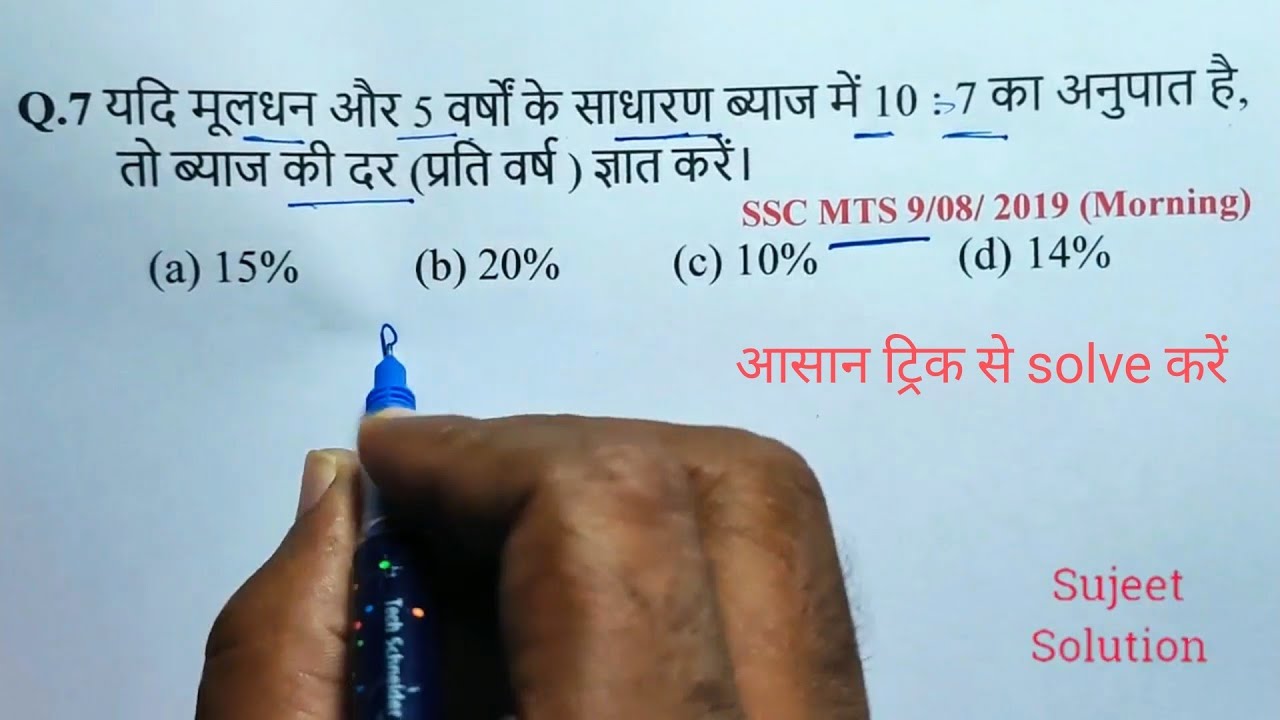 Q.7 यदि मूलधन और 5 वर्षों के साधारण ब्याज में 10 : 7 का अनुपात है,
तो ब्याज की दर (प्रति वर्ष ) ज्ञात करें।
SSC MTS 9/08/ 2019 (Morning)
(a) 15% (b) 20% (c) 10% (d) 14%
आसान ट्रिक से solve करें
Tech Schneider
Sujeet
Solution